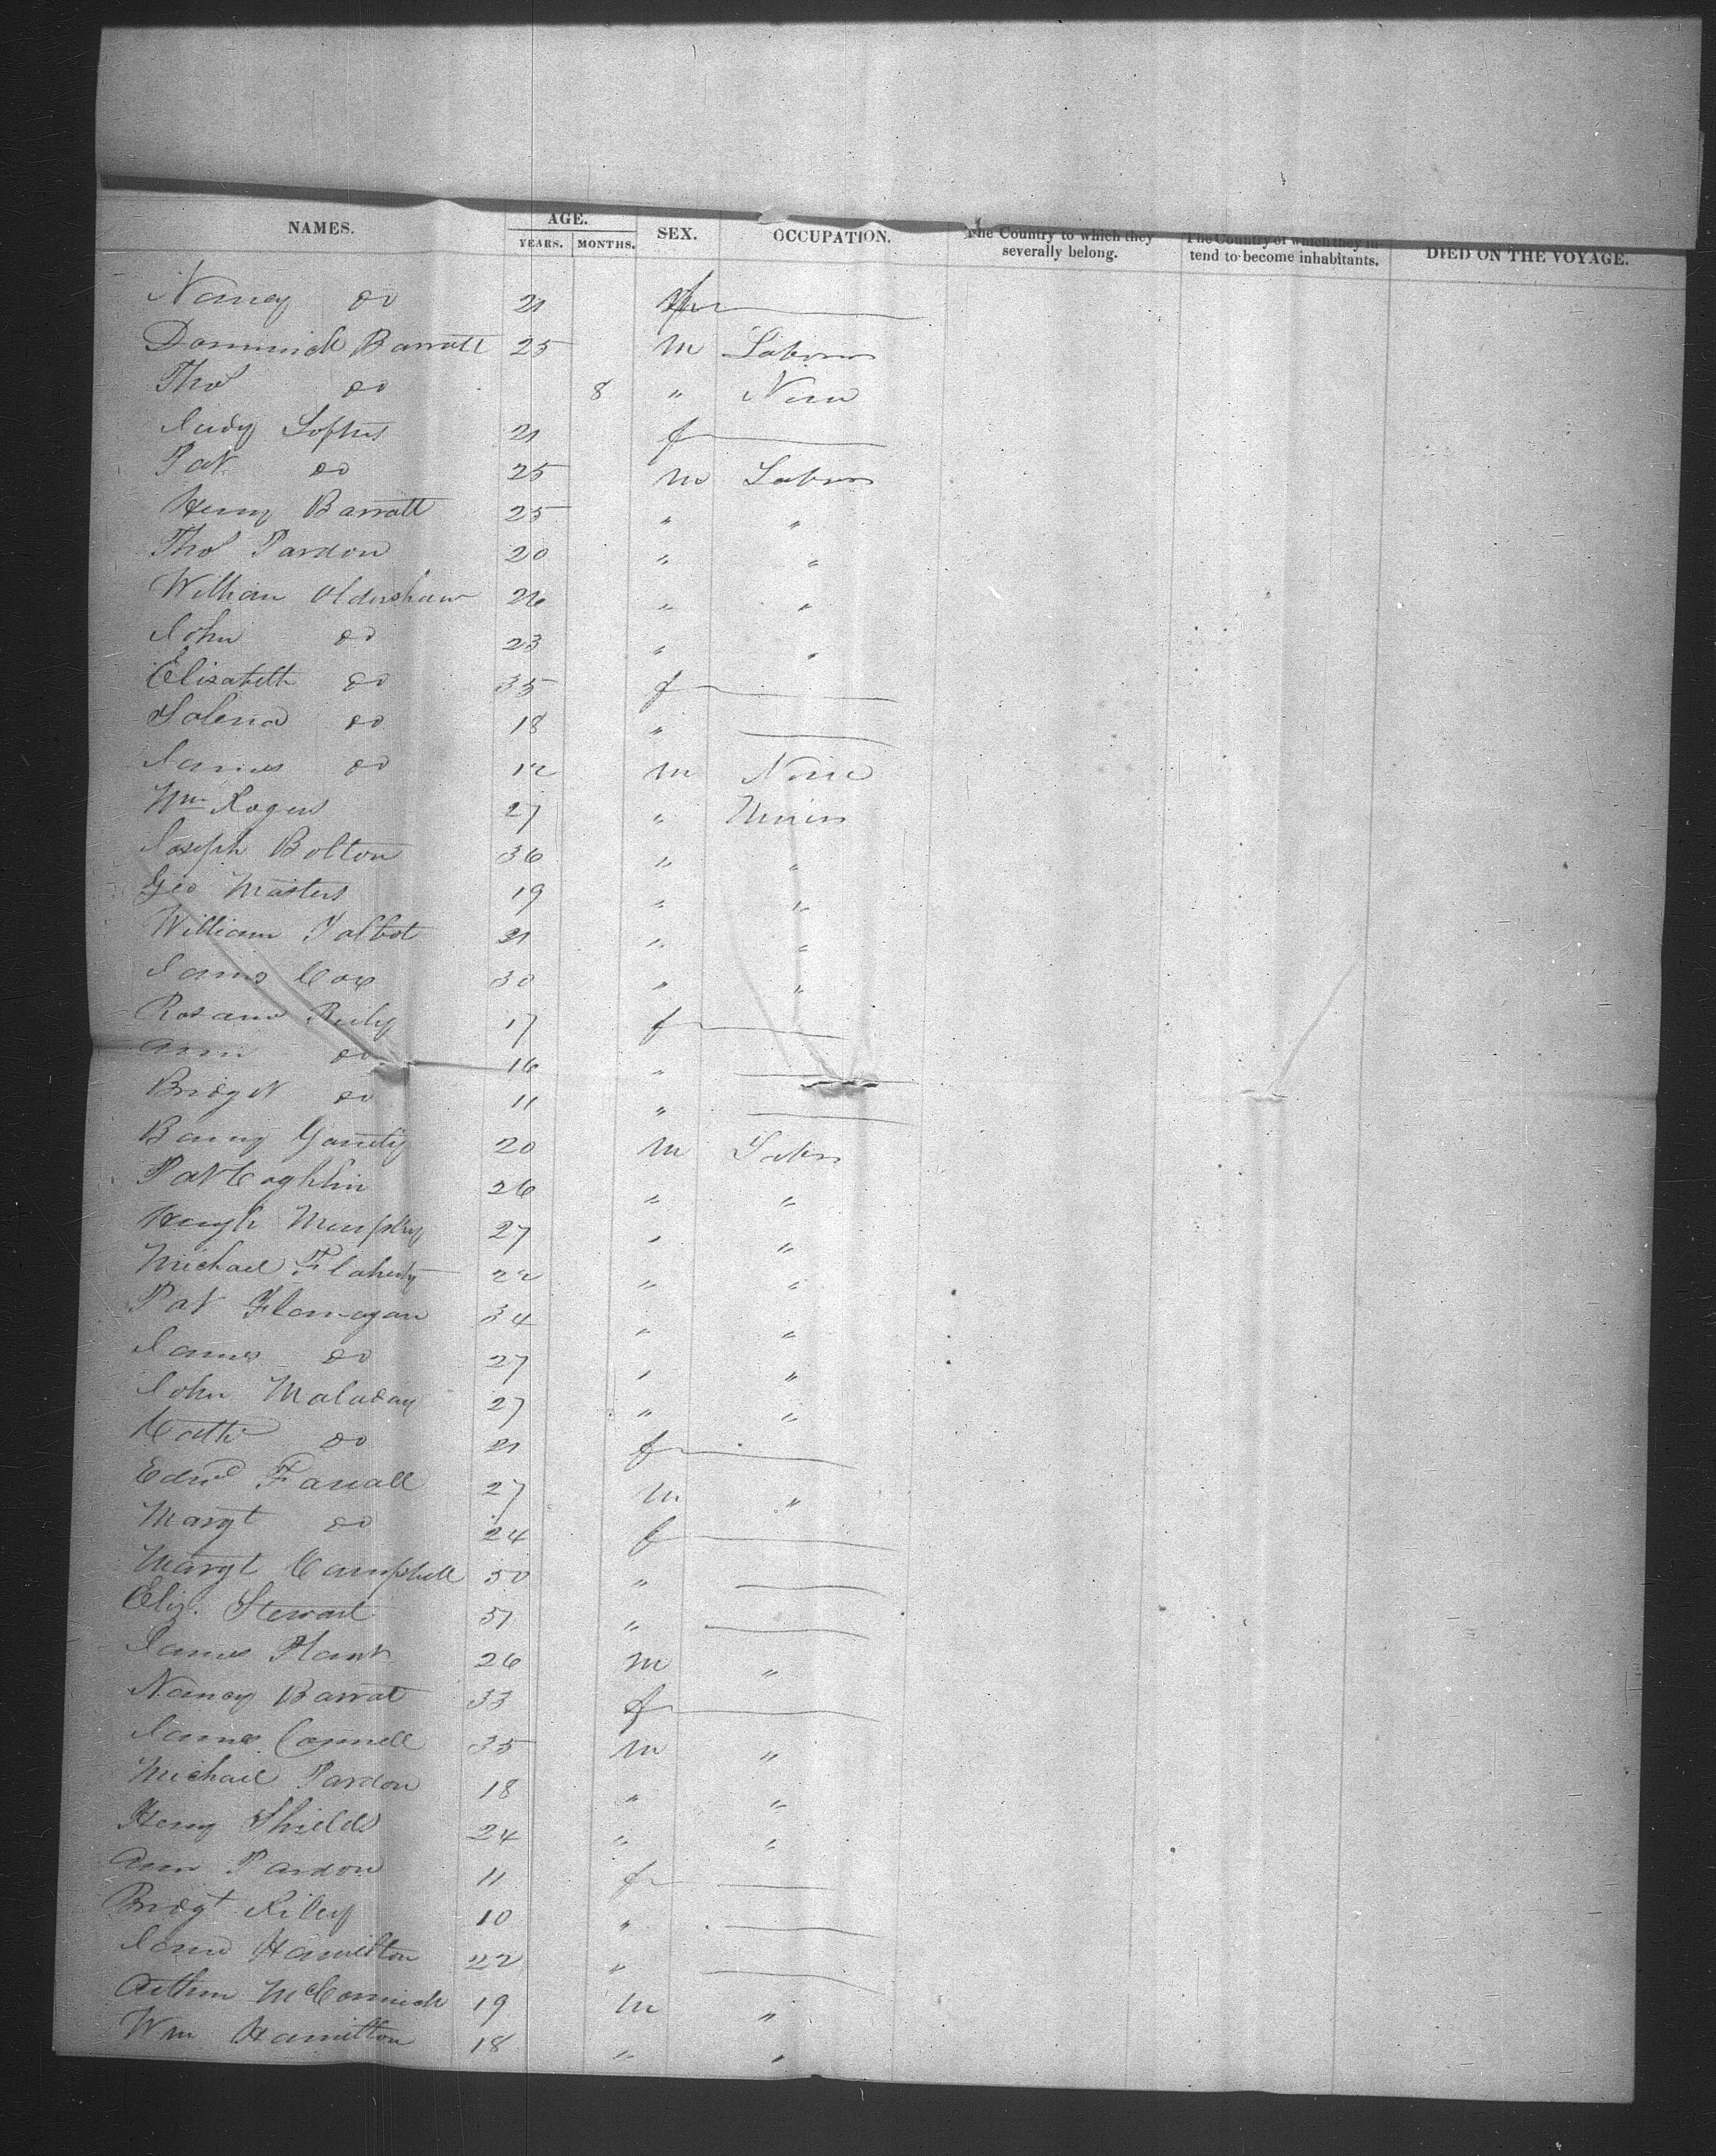 NAMES. AGE. YEARS. MONTHS. SEX. OCCUPATION. The Country to which they severally belong. The Country of which they in- tend to become inhabitants. DIED ON THE VOYAGE.
Nancy do 21 f
Dominick Barratt 25 m Laborer
Thos do 8 " None
Judy Loftus 21 f
Pat do 25 m Laborer
Henry Barratt 25 " "
Thos Pardon 20 " "
William Oldershaw 26 " "
John do 23 " "
Elizabeth do 35 f
Salena do 18 "
James do 12 m None
Wm Rogers 27 " Miner
Joseph Bolton 36 " "
Geo Masters 19 " "
William Talbot 21 " "
James Cox 30 " "
Rosanna Reily 17 f
Ann do 16 "
Bridget do 11 "
Barny 20 m Labr
Pat Coghlin 26 " "
Hugh Murphy 27 " "
Michael Flaherty 22 " "
Pat Flanagan 34 " "
James do 27 " "
John Maladay 27 " "
Cath do 21 f
Edwd Farrall 27 m "
Margt do 24 f
Margt Campbell 50 "
Eliz. Stewart "
James Plank 26 m "
Nancy Barrat 33 f
James Connell 35 m "
Michael Pardon 18 " "
Henry Shields 24 " "
Ann Pardon 11 f
Bridgt Riley 10 "
Jane Hamilton 22 "
Arthur McCormick 19 m "
Wm Hamilton 18 " "